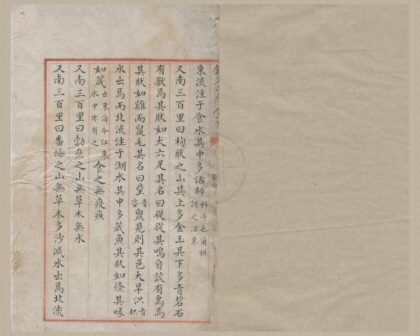 東流注于食水其中多活師科斗也爾雅謂之活東
又南三百里曰栒狀之山其上多金玉其下多青碧石
有獸焉其狀如犬六足其名曰從從其鳴自詨有鳥焉
其狀如雞而鼠毛其名曰𧊲鼠見則其邑大旱𣲙音枳
水出焉而北流注于湖水其中多葴魚其狀如儵其喙
如葴出東海今江東水中亦有之食之無疫疾
又南三百里曰勃垒之山無草木無水
又南三百里曰番條之山無草木多沙減水出焉北流